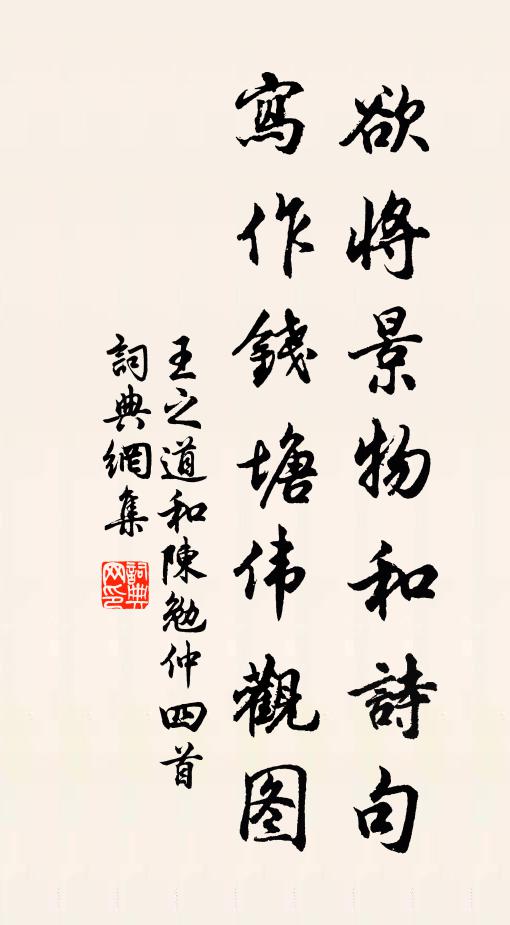 欲將景物和詩句
寫作錢塘伟觀图
王之道和陳勉仲四首
詞典網集
詞典
网印